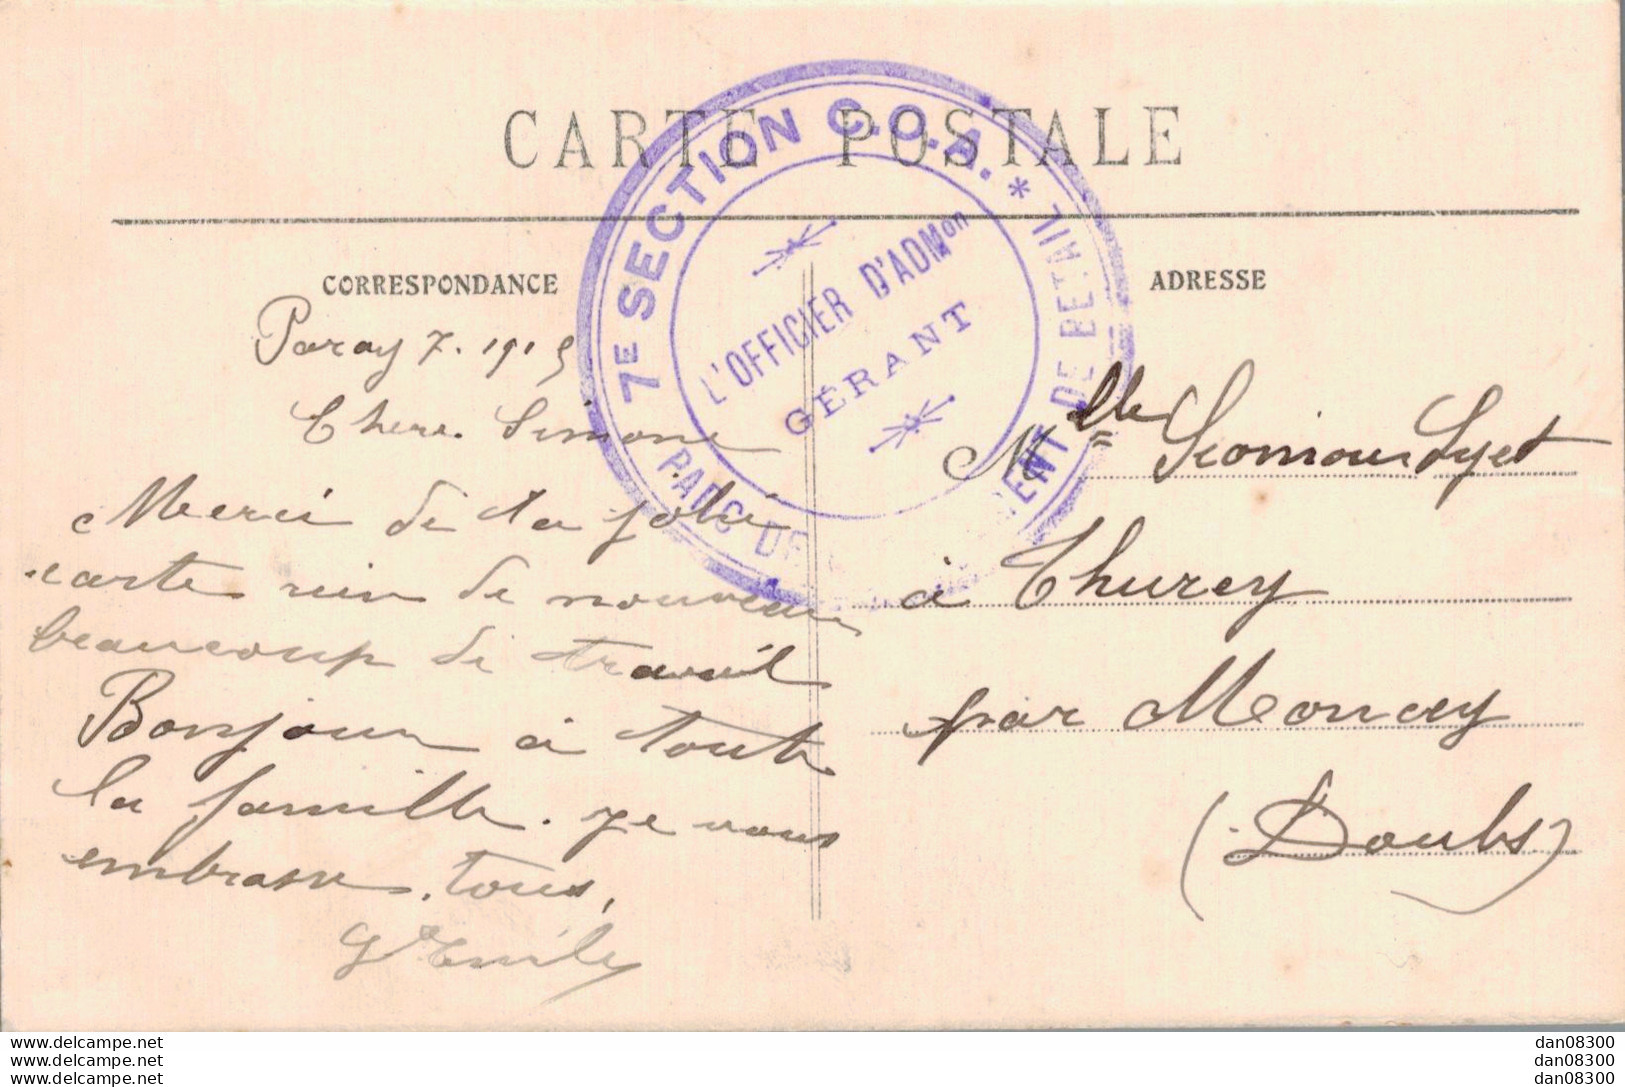 CARTE POSTALE
7E SECTION C.O.A. *
PARC DE BETAIL
L'OFFICIER D'ADMon
GÉRANT
CORRESPONDANCE
Paray 7. 1915
Chere Simone
Merci de ta jolie
carte rien de nouveau
beaucoup de travail
Bonjour à toute
la famille. Je vous
embrasse tous,
Emile
ADRESSE
Mlle
à Thurey
par Moncey
(Doubs)
dan08300
dan08300
dan08300
www.delcampe.net
www.delcampe.net
www.delcampe.net